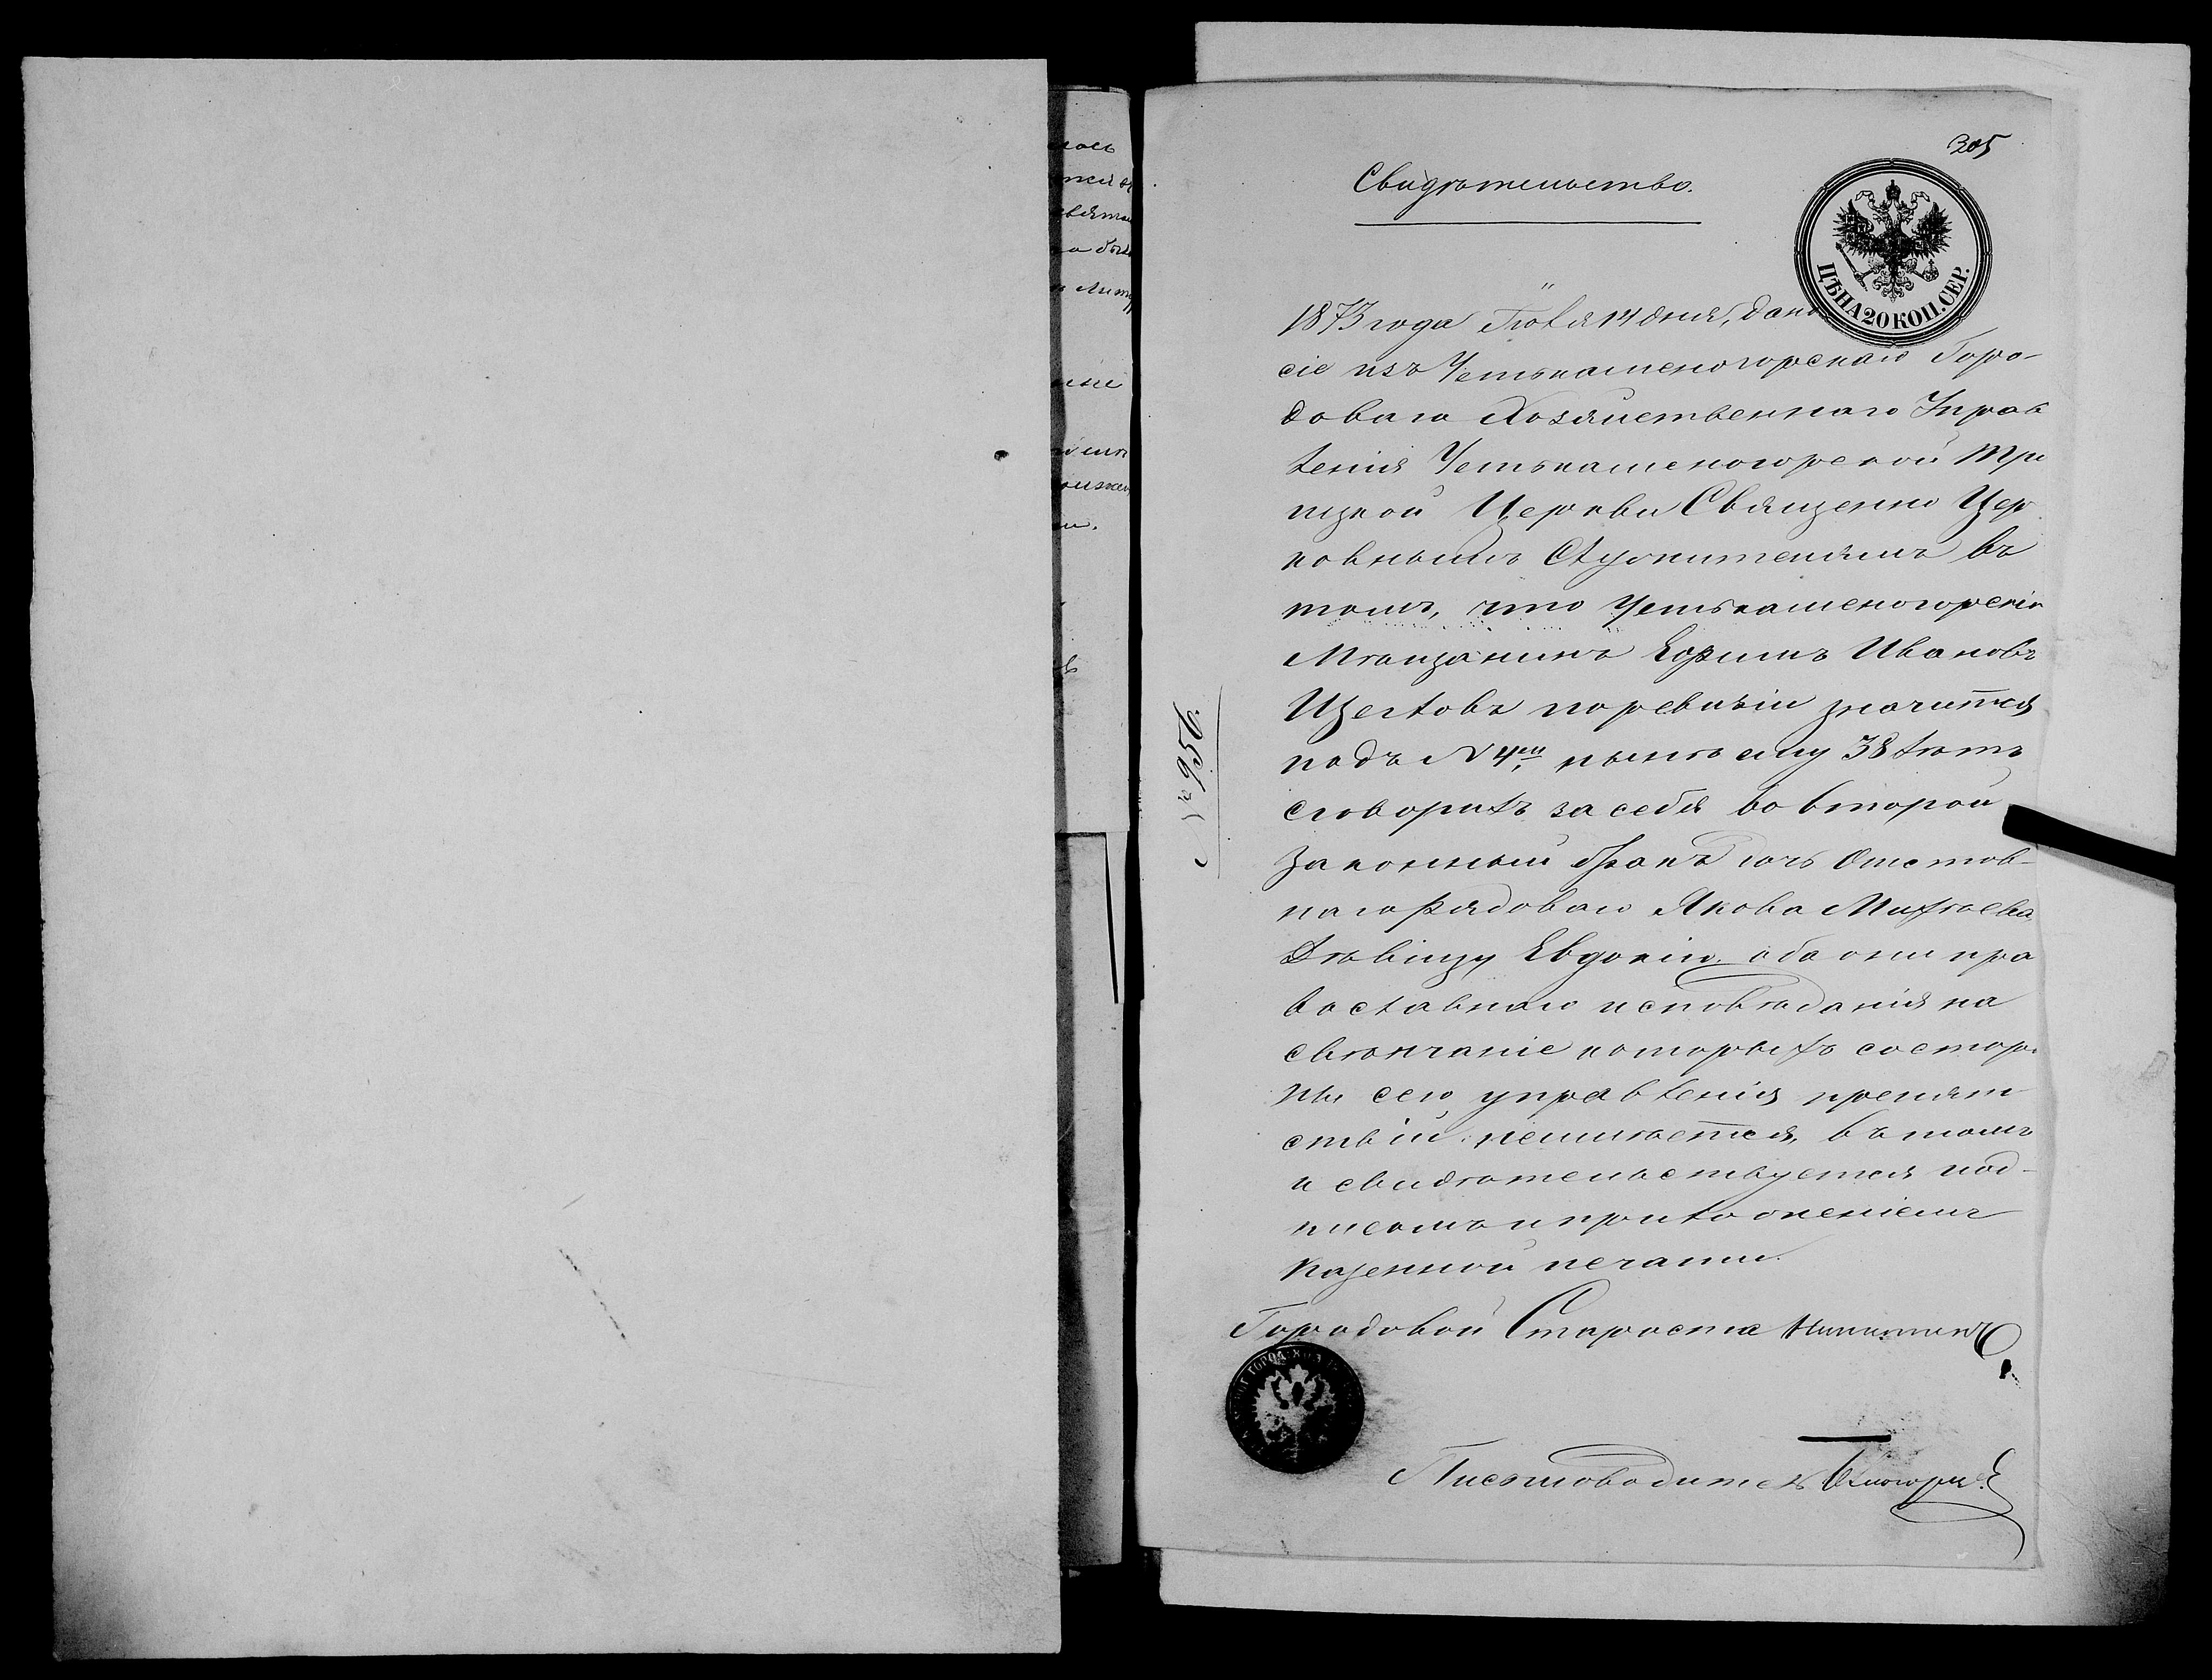 305
Свидѣтельство.
ЦѢНА 20 КОП. СЕР.
1873 года Іюля 14 дня, дано
сіе изъ Устькаменогорскаго Горо-
доваго Хозяйственнаго Управ
ленія Устькаменогорской Трои
цкой Церкви Священно Цер
ковнымъ Служителямъ въ
томъ, что Устькаменогорскій
Мѣщанинъ Ефимъ Ивановъ
Щегловъ поревизіи значится
подъ № 4ем, нынѣ ему 38 лѣтъ
сговорилъ за себя во второй
Законный бракъ дочь Отстав-
наго Рядоваго Якова Михѣева
Дѣвицу Евдокію, оба они пра
вославнаго исповѣданія на
свѣнчаніе которыхъ состоро
ны сего управленія препят
ствій неимѣется, въ томъ
и свидѣтельствуется под-
писомъ и приложеніемъ
Казенной печати.
№ 956.
Городовой Староста Никитинъ
Письмоводитель